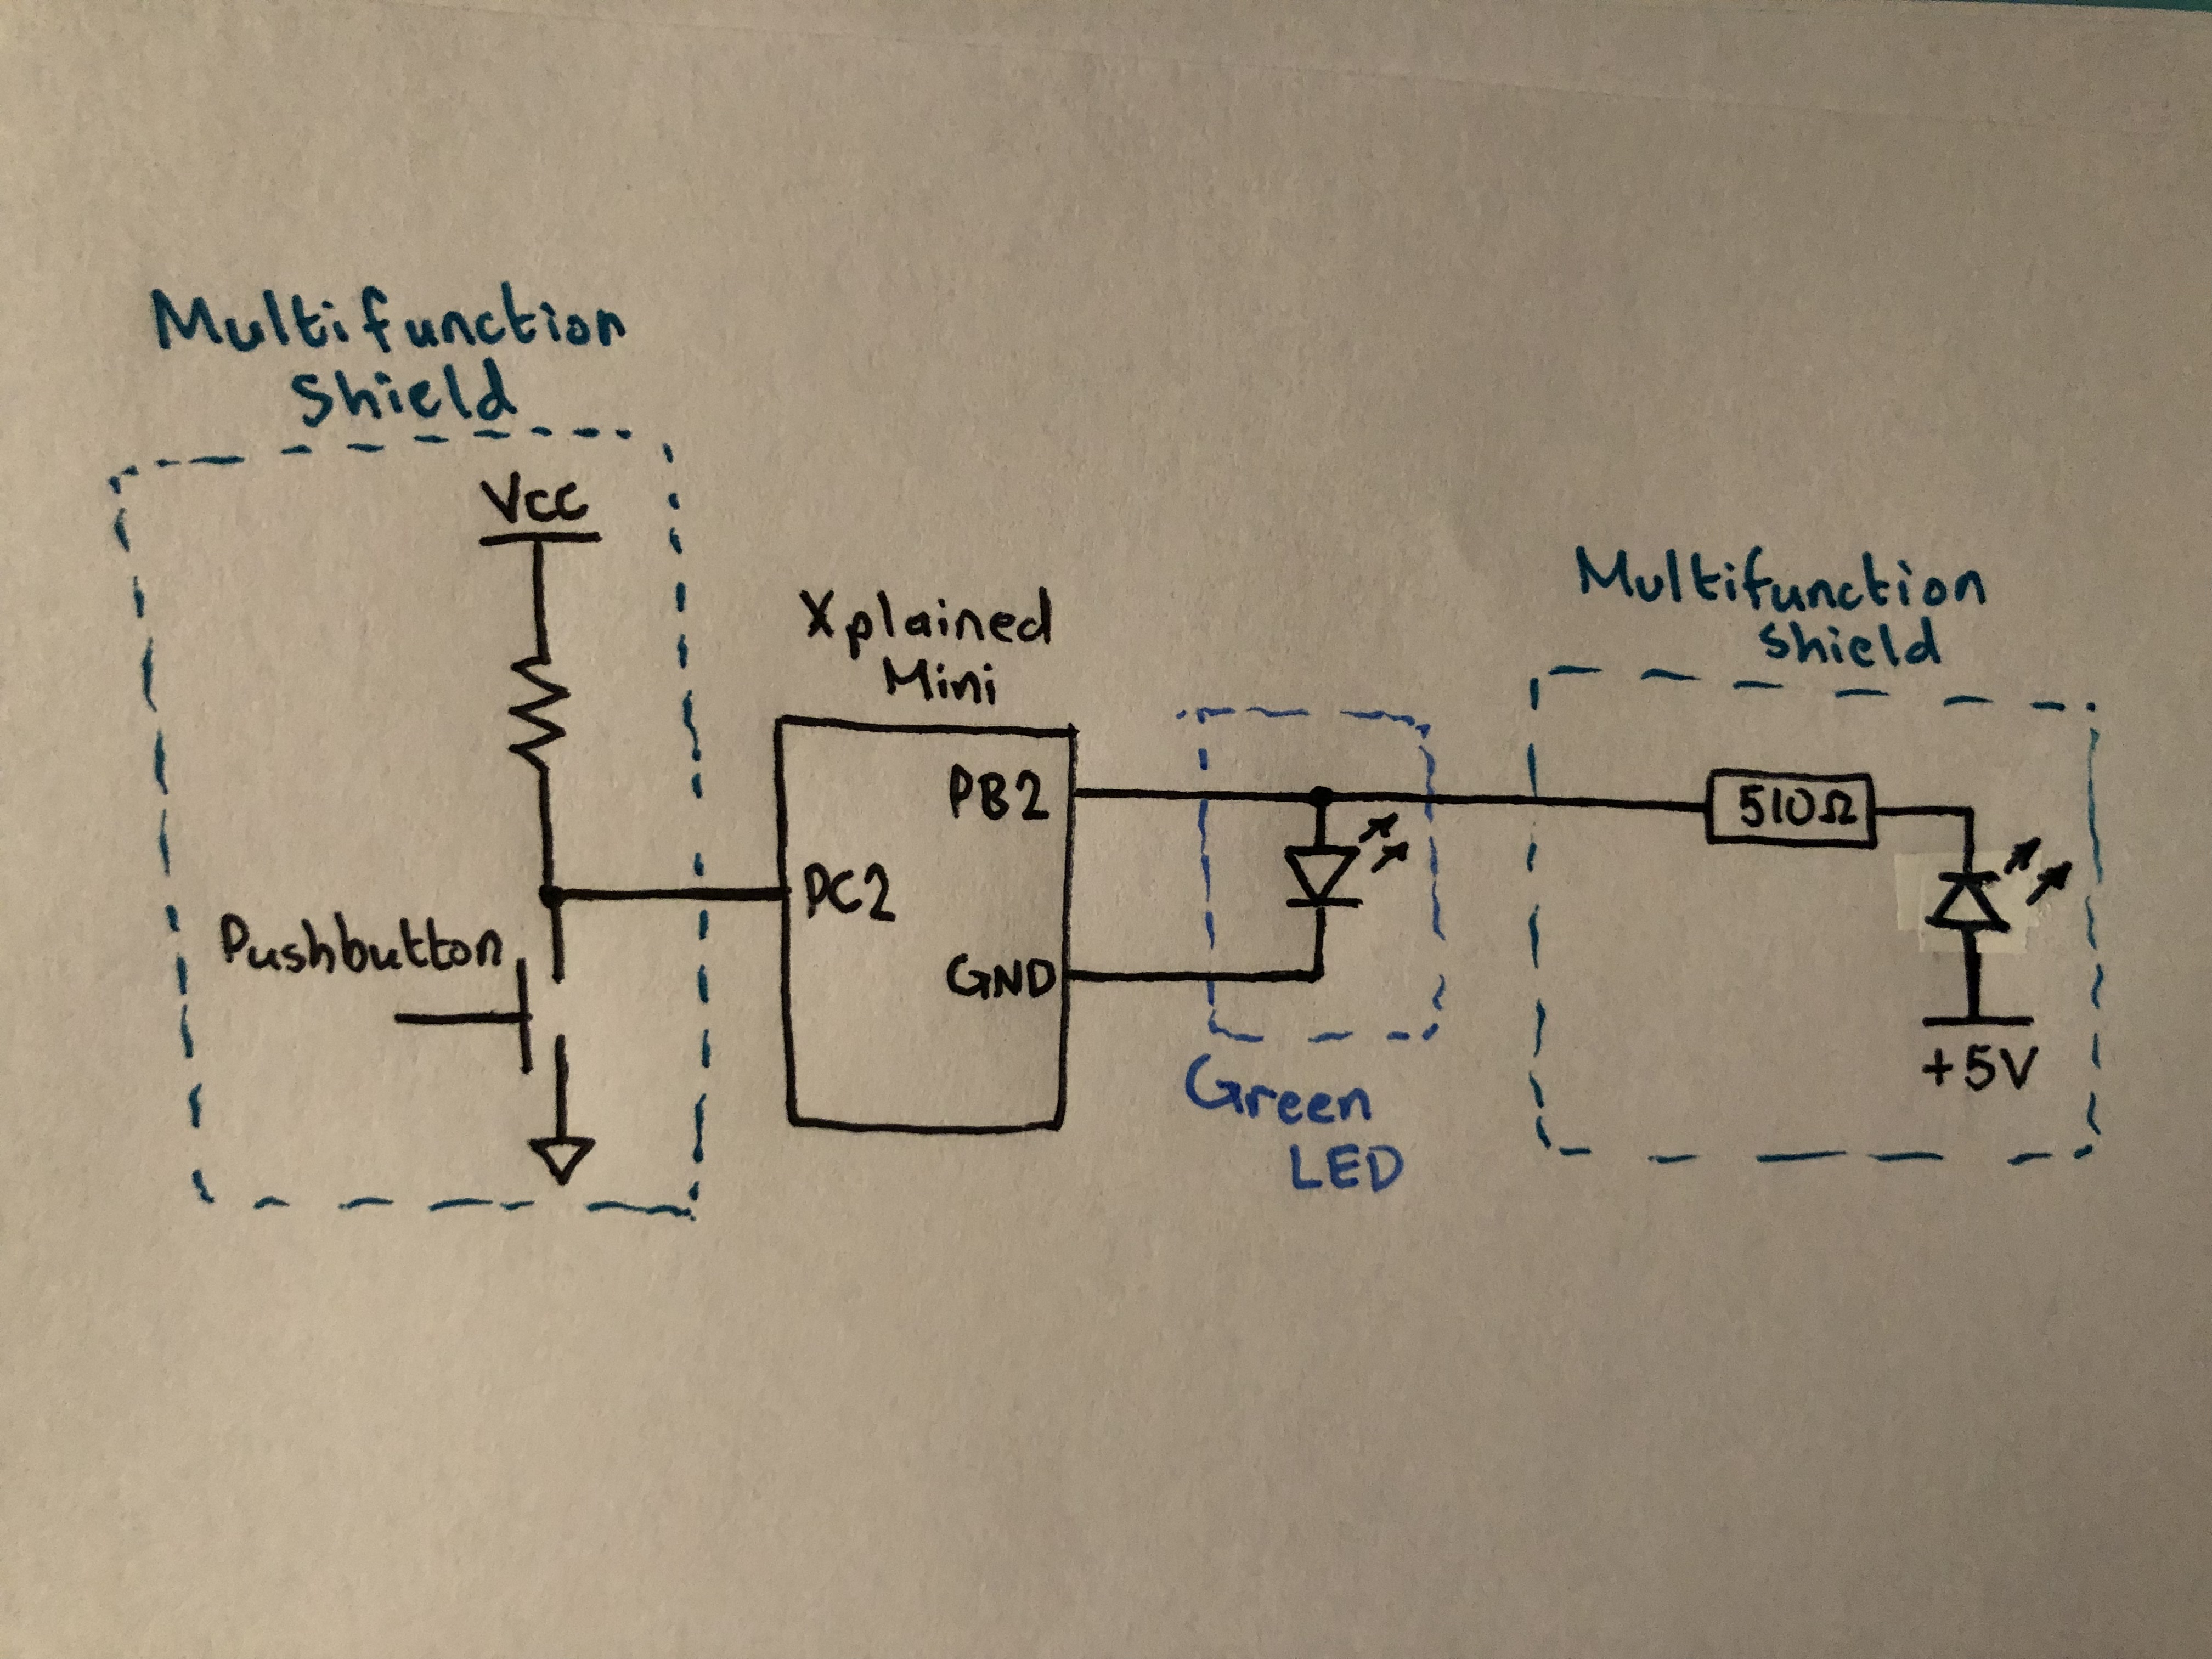 Multifunction
Shield
Vcc
Pushbutton
Xplained
Mini
PB2
PC2
GND
Green
LED
Multifunction
Shield
510Ω
+5V